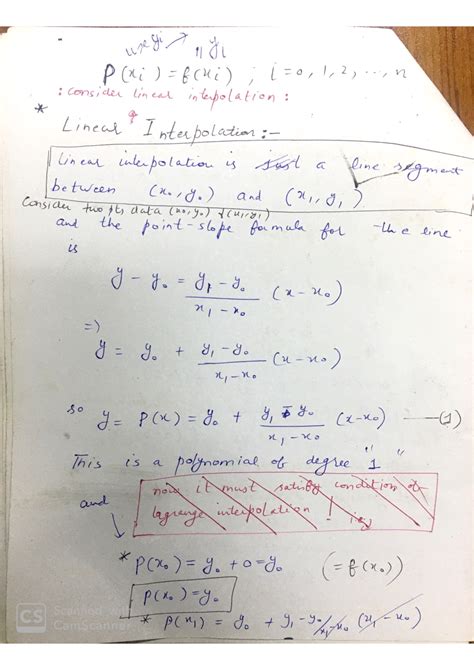 use yi → " yi
P(xi) = f(xi) ; i=0, 1, 2, ..., n
: consider linear interpolation :
* Linear Interpolation:-
linear interpolation is just a line segment
between (x0, y0) and (x1, y1)
Consider two pts data (x0, y0) & (x1, y1)
and the point-slope formula for the line
is
y - y0 = y1 - y0 / x1 - x0 (x - x0)
=)
y = y0 + y1 - y0 / x1 - x0 (x - x0)
so y = P(x) = y0 + y1 - y0 / x1 - x0 (x - x0) —(1)
This is a polynomial of degree "1"
now it must satisfy condition of
lagrange interpolation ! ie,
and
* P(x0) = y0 + 0 = y0 (= f(x0))
P(x0) = y0
* P(x1) = y0 + y1 - y0 / x1 - x0 (x1 - x0)
CS Scanned with
CamScanner